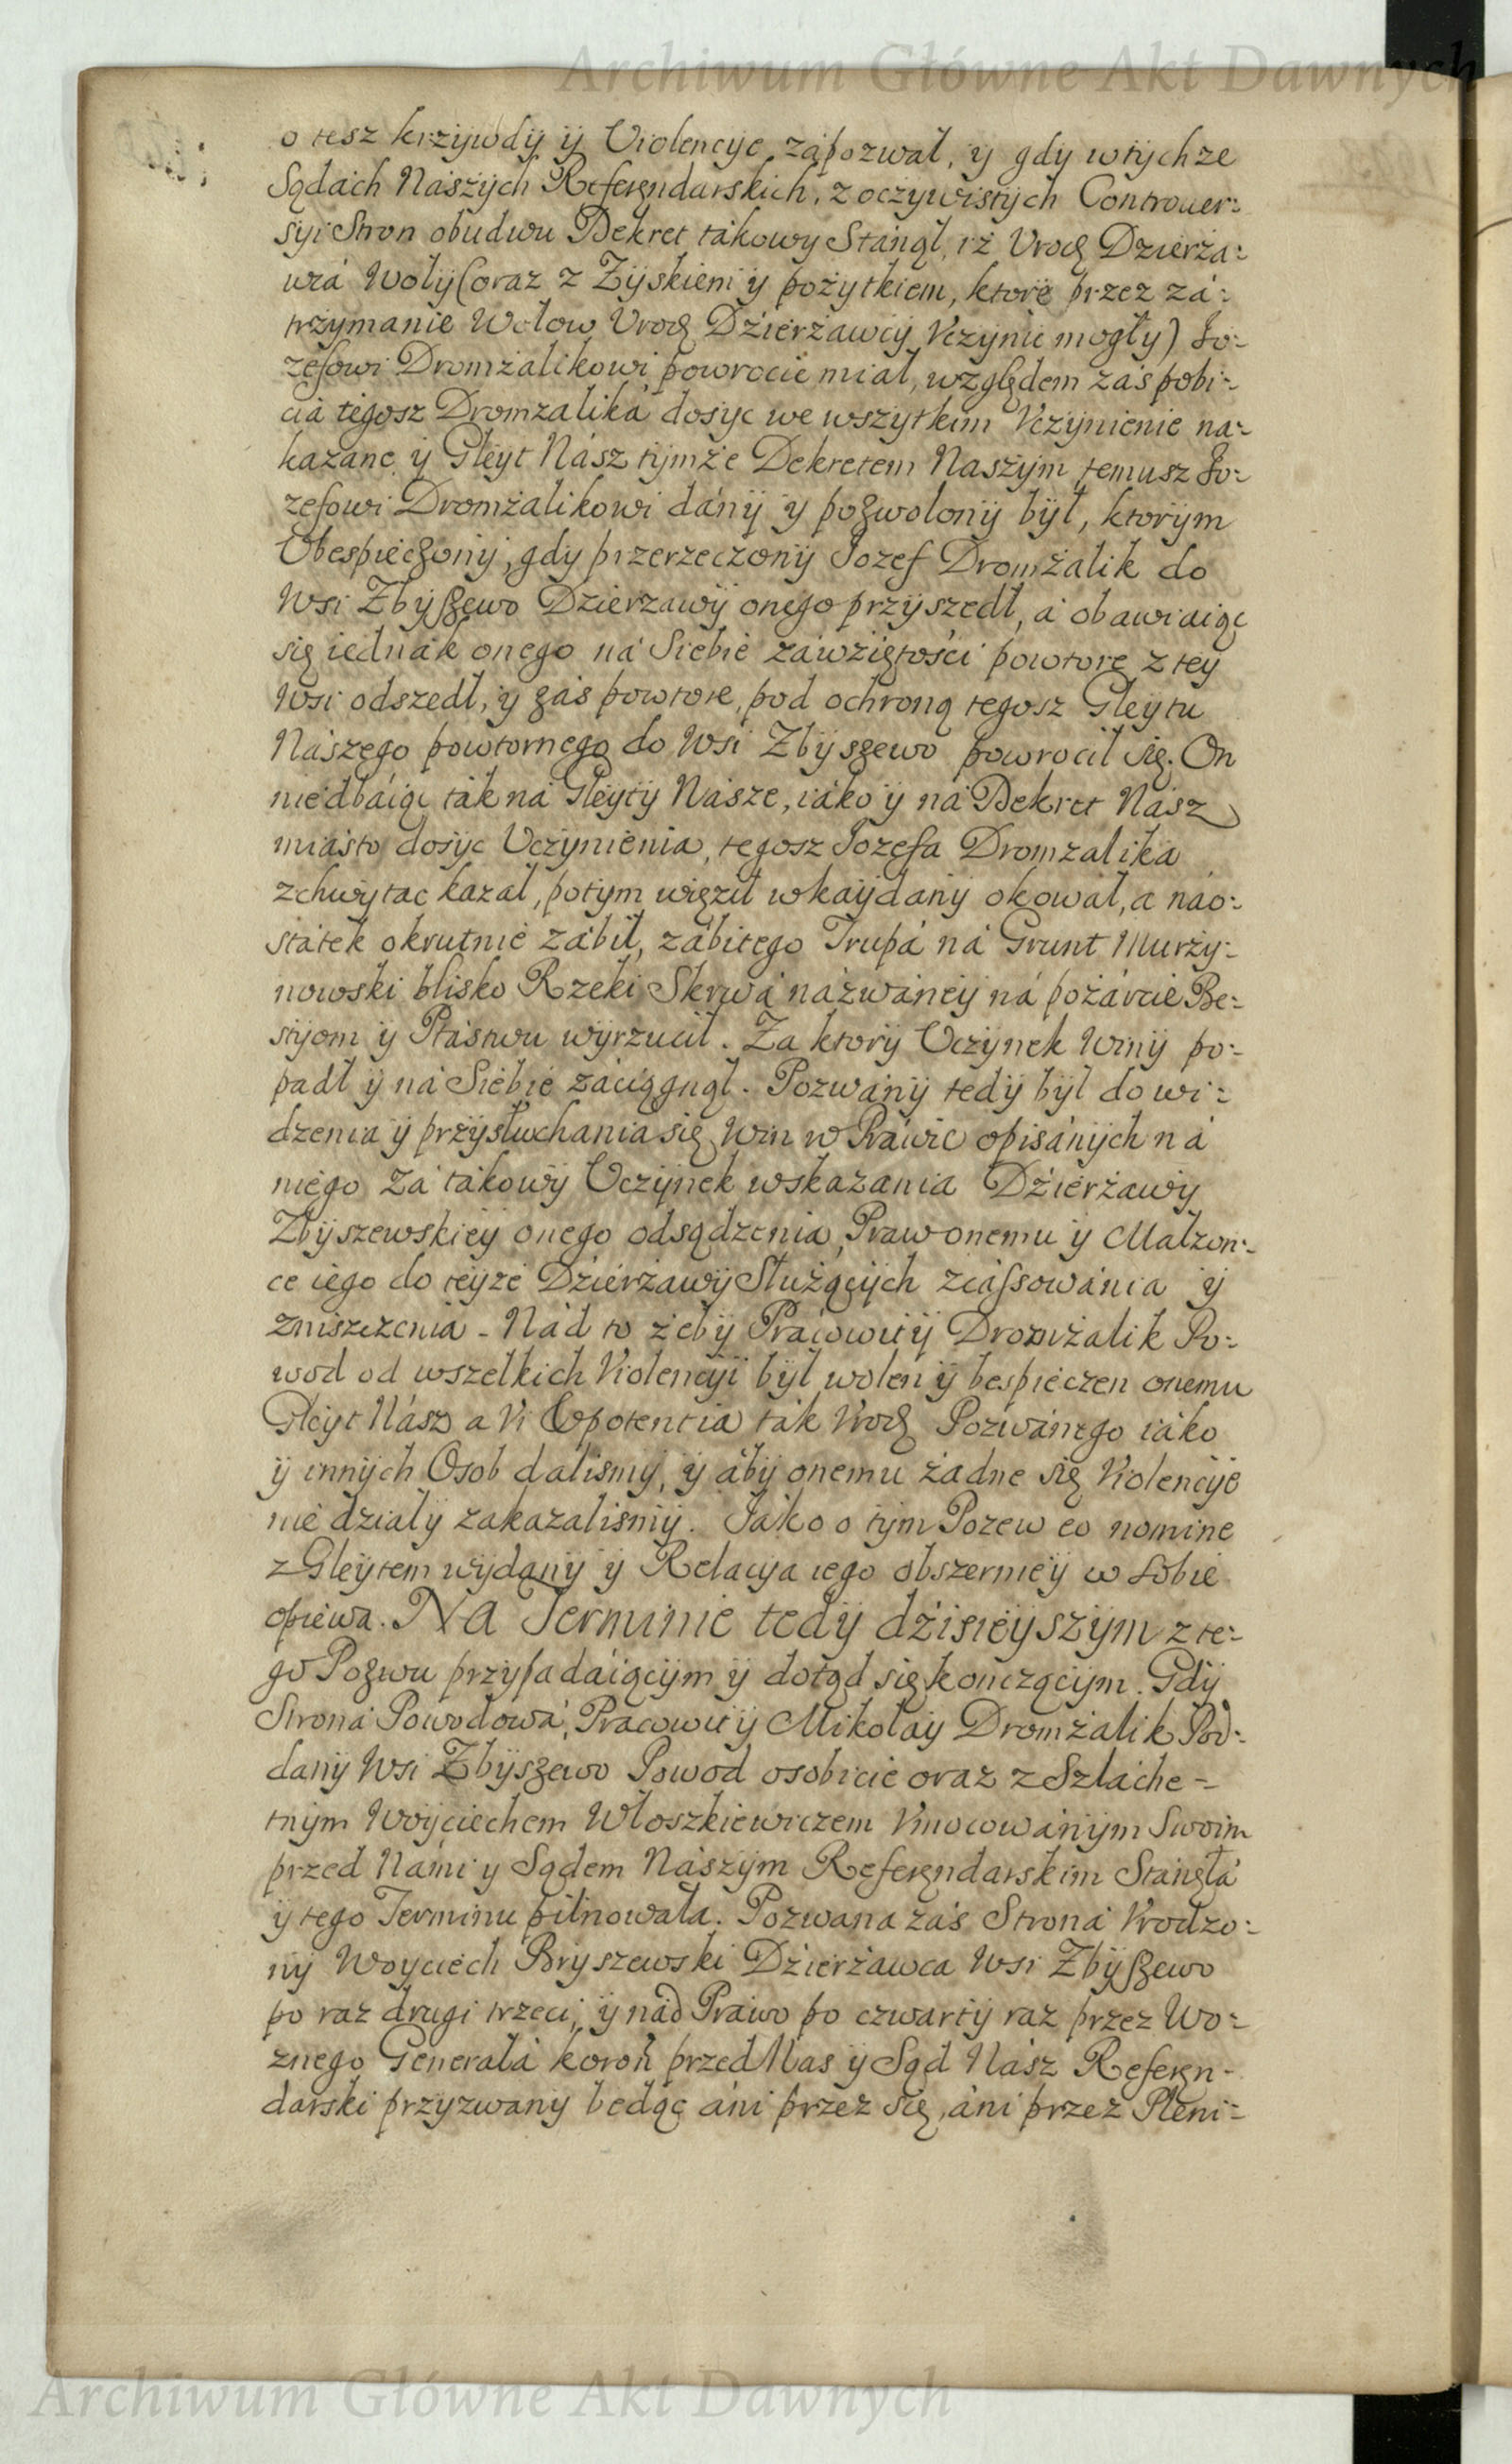 Archiwum Główne Akt Dawnych
o tesz krzywdy y Violencye zapozwał, y gdy w tychze
Sądach Naszych Referendarskich, z oczywistych Controuer:
syi Stron obudwu Dekret takowy Stanął, iż Urodz Dzierża:
wca Woły (oraz z Zyskiem y pożytkiem, ktore przez za:
trzymanie Wołow Urodz Dzierżawcy Uczynic mogły) Jo:
zefowi Dromżalikowi powrocic miał, względem zas pobi:
cia tegosz Dromzalika dosyc we wszytkim Uczynienie na:
kazane y Gleyt Nasz tymże Dekretem Naszym temusz Jo:
zefowi Dromżalikowi dany y pozwolony był, ktorym
Ubespieczony, gdy przerzeczony Jozef Dromżalik do
Wsi Zbyszewo Dzierzawy onego przyszedł, a obawiaiąc
się iednak onego na Siebie zawziętości powtore z tey
Wsi odszedł, y zas powtore, pod ochroną tegosz Gleytu
Naszego powtornego do Wsi Zbyszewo powrocił się. On
niedbaiąc tak na Gleyty Nasze, iako y na Dekret Nasz
miasto dosyc Uczynienia, tegosz Jozefa Dromzalika
zchwytac kazał, potym więził w kaydany okował, a nao:
statek okrutnie zabił, zabitego Trupa na Grunt Murzy:
nowski blisko Rzeki Skrwa nazwaney na pożarcie Be:
styom y Ptastwu wyrzucił. Za ktory Uczynek Winy po:
padł y na Siebie zaciągnął. Pozwany tedy był do wi:
dzenia y przysłuchania się Win w Prawie opisanych na
niego Za takowy Uczynek wskazania Dzierżawy
Zbyszewskiey onego odsądzenia, Praw onemu y Małzon:
ce iego do teyże Dzierżawy Służących zcassowania y
zniszczenia - Nad to żeby Pracowity Dromżalik Po:
wod od wszelkich Violencyi był wolen y bespieczen onemu
Gleyt Nasz a Vi & potentia tak Urodz Pozwanego iako
y innych Osob dalismy, y aby onemu żadne się Violencye
nie działy zakazalismy. Jako o tym Pozew eo nomine
z Gleytem wydany y Relacya iego obszerniey w sobie
opiewa. Na Terminie tedy dzisieyszym z te:
go Pozwu przypadaiącym y dotąd się kończącym. Gdy
Strona Powodowa, Pracowity Mikołay Dromżalik Pod:
dany Wsi Zbyszewo Powod osobicie oraz z Szlache-
tnym Woyciechem Włoszkiewiczem Umocowanym Swoim
przed Nami y Sądem Naszym Referendarskim Stanęła
y tego Terminu pilnowała. Pozwana zas Strona Urodzo:
ny Woyciech Bryszewski Dzierżawca Wsi Zbyszewo
po raz drugi trzeci, y nad Prawo po czwarty raz przez Wo:
znego Generała koron przed Nas y Sąd Nasz Referen-
darski przyzwany będąc ani przez się, ani przez Pleni:
Archiwum Główne Akt Dawnych